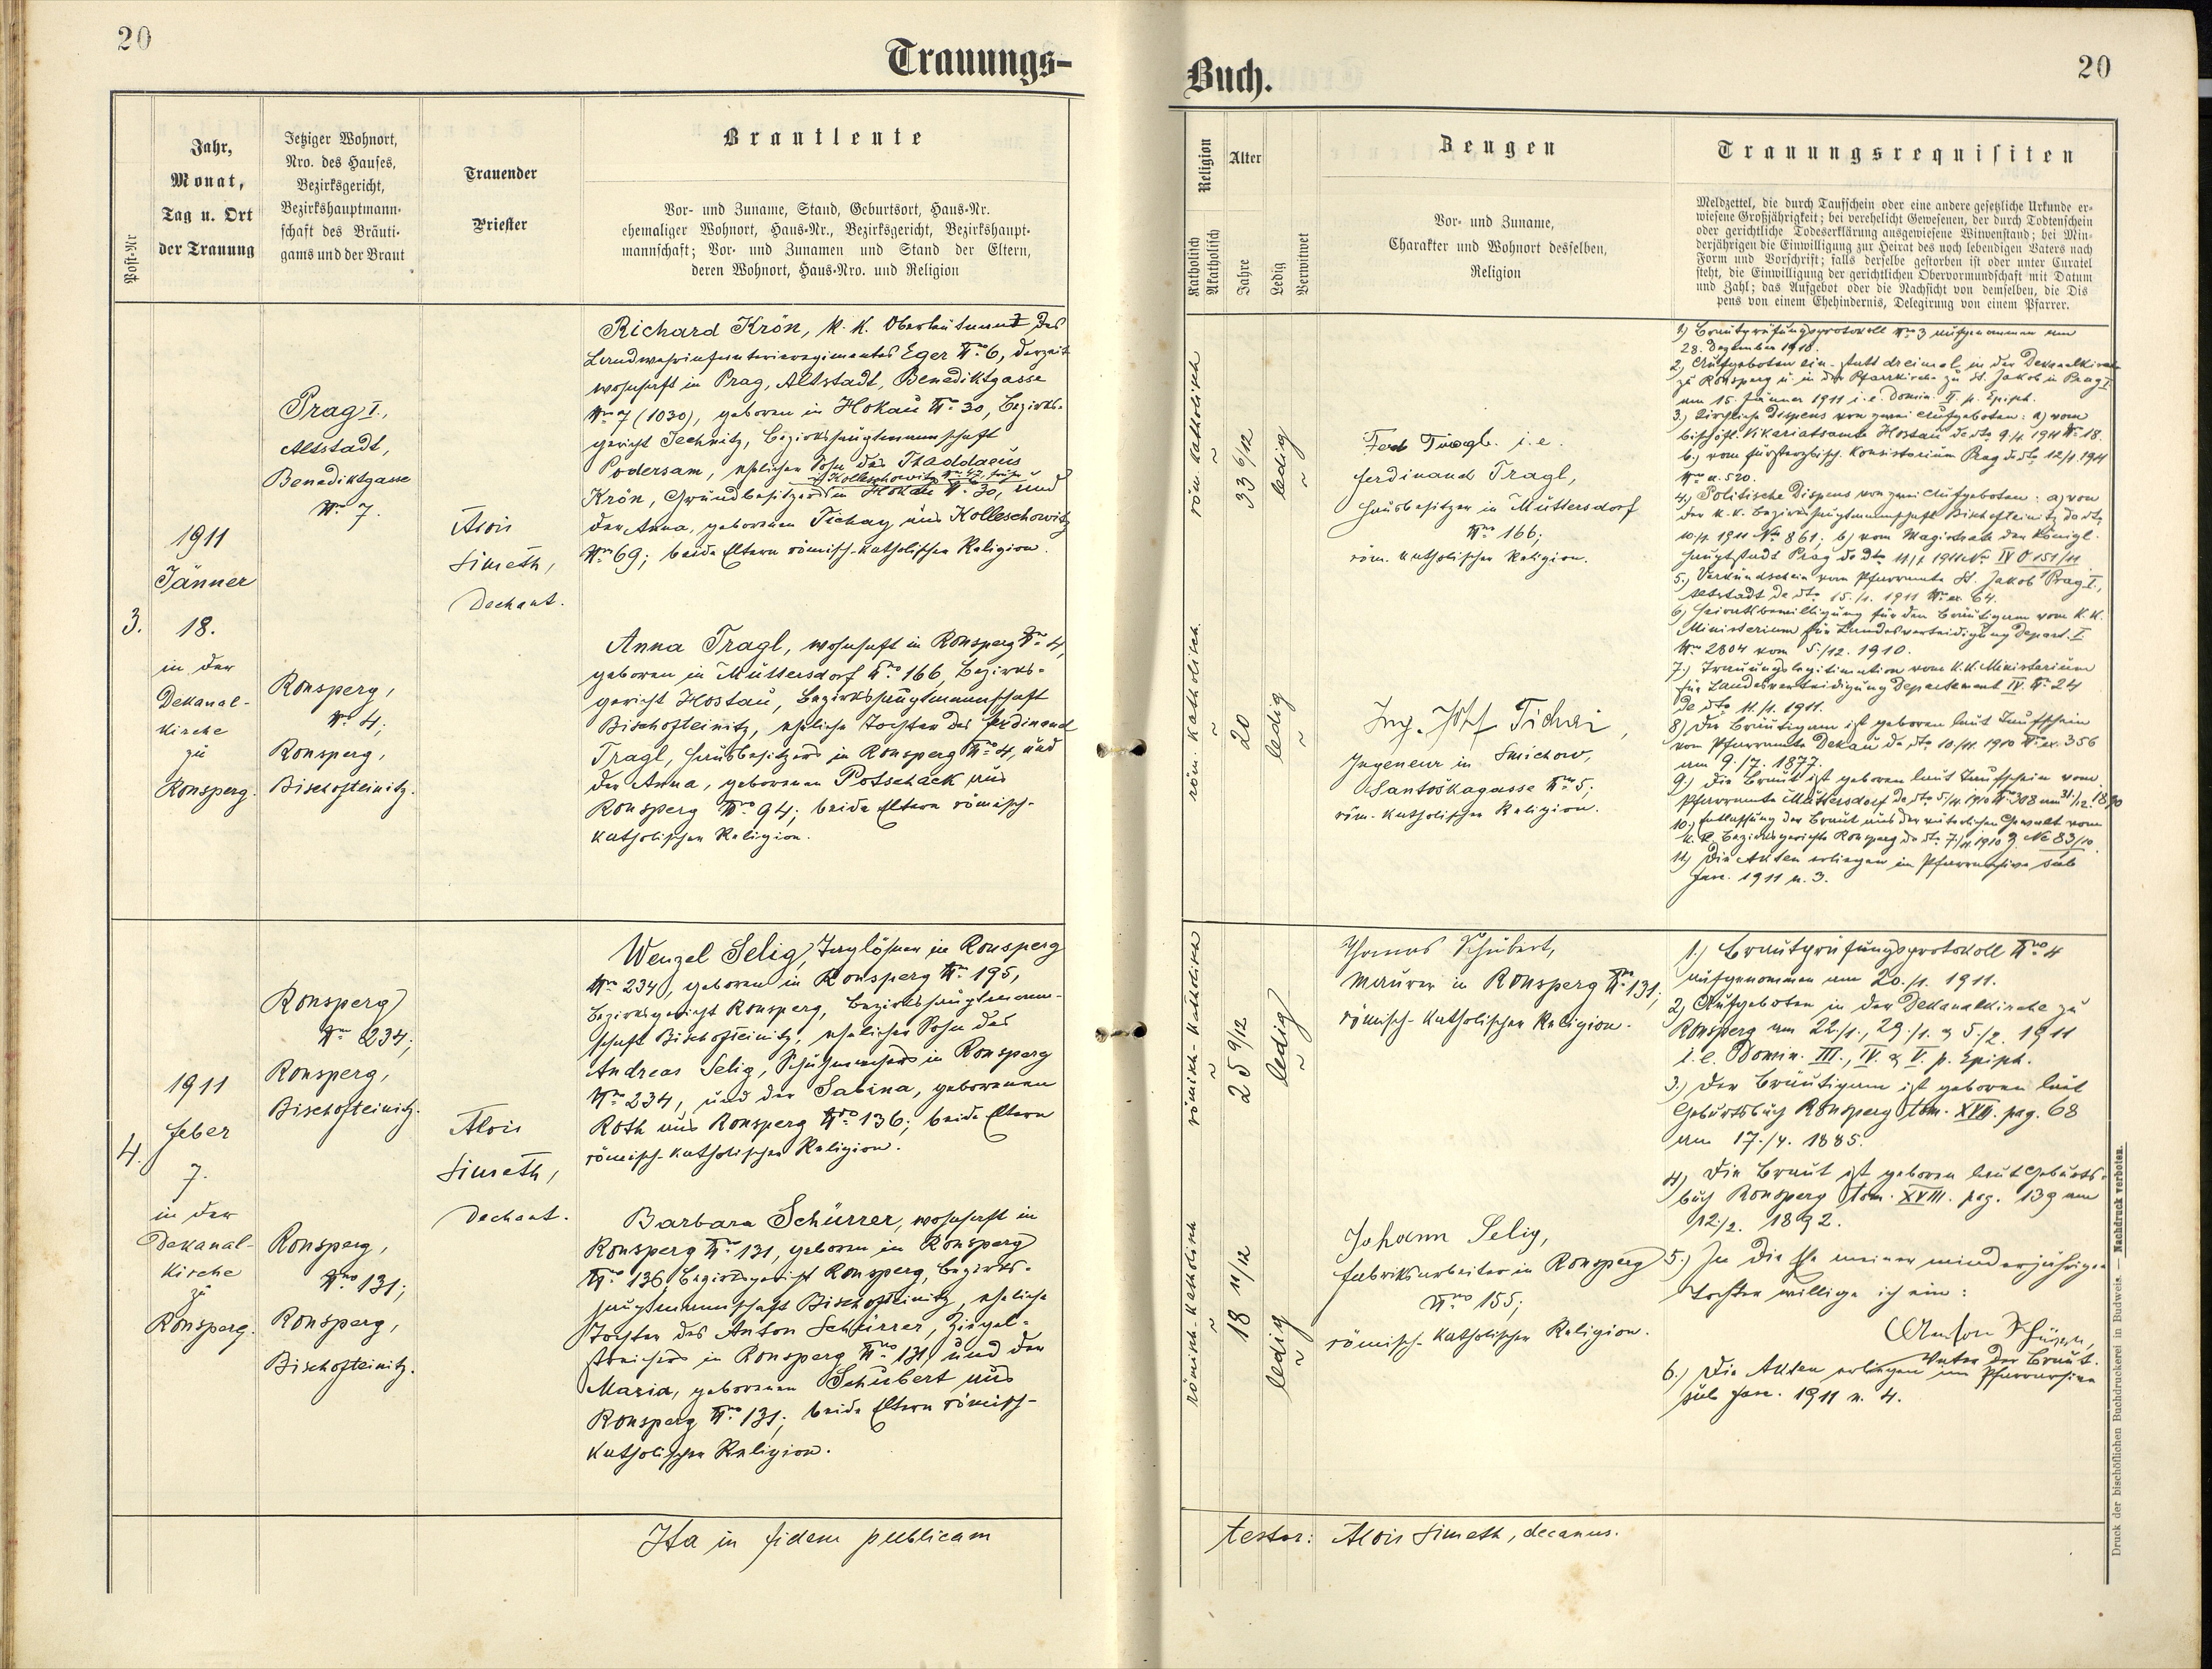 20
Trauungs-
Post-Nr
Jahr,
Monat,
Tag u. Ort
der Trauung
Jetziger Wohnort,
Nro. des Hauses,
Bezirksgericht,
Bezirkshauptmann-
schaft des Bräuti-
gams und der Braut
Trauender
Priester
Brautleute
Vor- und Zuname, Stand, Geburtsort, Haus-Nr.
ehemaliger Wohnort, Haus-Nr., Bezirksgericht, Bezirkshaupt-
mannschaft; Vor- und Zunamen und Stand der Eltern,
deren Wohnort, Haus-Nro. und Religion
3.
1911
Jänner
18.
in der
Dekanal-
kirche
zu
Ronsperg.
Prag I.,
Altstadt,
Benediktgasse
Nro 7.
Ronsperg,
Nro 4;
Ronsperg,
Bischofteinitz.
Alois
Simeth,
Dechant.
Richard Krön, k. k. Oberleutnant des
Landwehrinfanterieregimentes Eger Nro 6, derzeit
wohnhaft in Prag, Altstadt, Benediktgasse
Nro 7 (1030), geboren in Hokau Nro 30, Bezirks-
gericht Jechnitz, Bezirkshauptmannschaft
Podersam, ehelicher Sohn des Thaddaeus
Krön, Grundbesitzers in Hokau Nro 30, und
der Anna, geborenen Tichay aus Kolleschowitz
Nro 69; beide Eltern römisch-katholischer Religion.
Anna Tragl, wohnhaft in Ronsperg Nro 4,
geboren in Muttersdorf Nro 166, Bezirks-
gericht Hostau, Bezirkshauptmannschaft
Bischofteinitz, eheliche Tochter des Ferdinand
Tragl, Hausbesitzers in Ronsperg Nro 4, und
der Anna, geborenen Potschack aus
Ronsperg Nro 94; beide Eltern römisch-
katholischer Religion.
4.
1911
Feber
7.
in der
Dekanal-
kirche
zu
Ronsperg.
Ronsperg
Nro 234;
Ronsperg,
Bischofteinitz.
Ronsperg,
Nro 131;
Ronsperg,
Bischofteinitz.
Alois
Simeth,
Dechant.
Wenzel Selig, Taglöhner in Ronsperg
Nro 234, geboren in Ronsperg Nro 195,
Bezirksgericht Ronsperg, Bezirkshauptmann-
schaft Bischofteinitz, ehelicher Sohn des
Andreas Selig, Schuhmachers in Ronsperg
Nro 234, und der Sabina, geborenen
Roth aus Ronsperg Nro 136; beide Eltern
römisch-katholischer Religion.
Barbara Schürrer, wohnhaft in
Ronsperg Nro 131, geboren in Ronsperg
Nro 136, Bezirksgericht Ronsperg, Bezirks-
hauptmannschaft Bischofteinitz, eheliche
Tochter des Anton Schürrer, Ziegel-
streichers in Ronsperg Nro 131, und der
Maria, geborenen Schubert aus
Ronsperg Nro 131; beide Eltern römisch-
katholischer Religion.
Ita in fidem publicam
Buch.
20
Religion
Katholisch
Akatholisch
Alter
Jahre
Ledig
Verwitwet
Zeugen
Vor- und Zuname,
Charakter und Wohnort desselben,
Religion
Trauungsrequisiten
Meldzettel, die durch Taufschein oder eine andere gesetzliche Urkunde er-
wiesene Großjährigkeit; bei verehelicht Gewesenen, der durch Todtenschein
oder gerichtliche Todeserklärung ausgewiesene Witwenstand; bei Min-
derjährigen die Einwilligung zur Heirat des noch lebendigen Vaters nach
Form und Vorschrift; falls derselbe gestorben ist oder unter Curatel
steht, die Einwilligung der gerichtlichen Obervormundschaft mit Datum
und Zahl; das Aufgebot oder die Nachsicht von demselben, die Dis
pens von einem Ehehindernis, Delegirung von einem Pfarrer.
röm. katholisch
33 6/12
ledig
röm. katholisch.
20
ledig
Ferd Tragl. i. e.
Ferdinand Tragl,
Hausbesitzer in Muttersdorf
Nro 166;
röm. katholischer Religion.
Ing.
Ingeneur in Smichow,
Santoškagasse Nro 5;
röm. katholischer Religion.
1) Brautprüfungsprotokoll Nro 3 aufgenommen am
28. Dezember 1910.
2) Aufgeboten ein- statt dreimal in der Dekanalkirche
zu Ronsperg u. in der Pfarrkirche zu St. Jakob in Prag I
am 15. Jänner 1911 i. e. Domin. II. p. Epiph.
3.) Kirchliche Dispens von zwei Aufgeboten: a) vom
bischöfl. Vikariatsamte Hostau de dto 9./1. 1911 Nro 18.
b.) vom fürsterzbisch. Konsistorium Prag de dto 12/1. 1911
Nro 520.
4) Politische Dispens von zwei Aufgeboten: a) von
der k. k. Bezirkshauptmannschaft Bischofteinitz de dto
10./1. 1911 Nro 861; b) vom Magistrate der königl.
Hauptstadt Prag de dto 11/1. 1911 Nro IV O 151/11
5.) Verkündschein vom Pfarramte St. Jakob Prag I.,
Altstadt de dto 15./1. 1911 Nro ex. 64.
6) Heiratsbewilligung für den Bräutigam vom k. k.
Ministerium für Landesverteidigung Depart. I
Nro 2804 vom 5./12. 1910.
7.) Trauungslegitimation vom k. k. Ministerium
für Landesverteidigung Departement IV. Nro 24
de dto 11./1. 1911.
8) Der Bräutigam ist geboren laut Taufschein
vom Pfarramte Dekau de dto 10./11. 1910 Nro ex. 356
am 9./7. 1877.
9.) Die Braut ist geboren laut Taufschein vom
Pfarramte Muttersdorf de dto 5/11. 1910 Nro 308 am 31./12. 1890
10.) Entlassung der Braut aus der väterlichen Gewalt vom
k. k. Bezirksgerichte Ronsperg de dto 7./11. 1910 Nc 83/10.
11.) Die Akten erliegen im Pfarrarchive sub
Fasc. 1911 n. 3.
römisch-katholisch
25 9/12
ledig
römisch-katholisch
18 11/12
ledig
Thomas Schubert,
Maurer in Ronsperg Nro 131;
römisch-katholischer Religion.
Johann Selig,
Fabriksarbeiter in Ronsperg
Nro 155;
römisch-katholischer Religion.
1.) Brautprüfungsprotokoll Nro 4
aufgenommen am 20./1. 1911.
2.) Aufgeboten in der Dekanalkirche zu
Ronsperg am 22./1., 29./1. & 5./2. 1911
i. e. Domin. III., IV. & V. p. Epiph.
3.) Der Bräutigam ist geboren laut
Geburtsbuch Ronsperg tom. XVII. pag. 68
am 17./4. 1885.
4) Die Braut ist geboren laut Geburts-
buch Ronsperg tom. XVIII. pag. 139 am
12./2. 1892.
5.) In die Ehe meiner minderjährigen
Tochter willige ich ein:
Anton Schürrer,
Vater der Braut.
6.) Die Akten erliegen im Pfarrarchive
sub Fasc. 1911 n. 4.
testor: Alois Simeth, decanus.
Druck der bischöflichen Buchdruckerei in Budweis. — Nachdruck verboten.